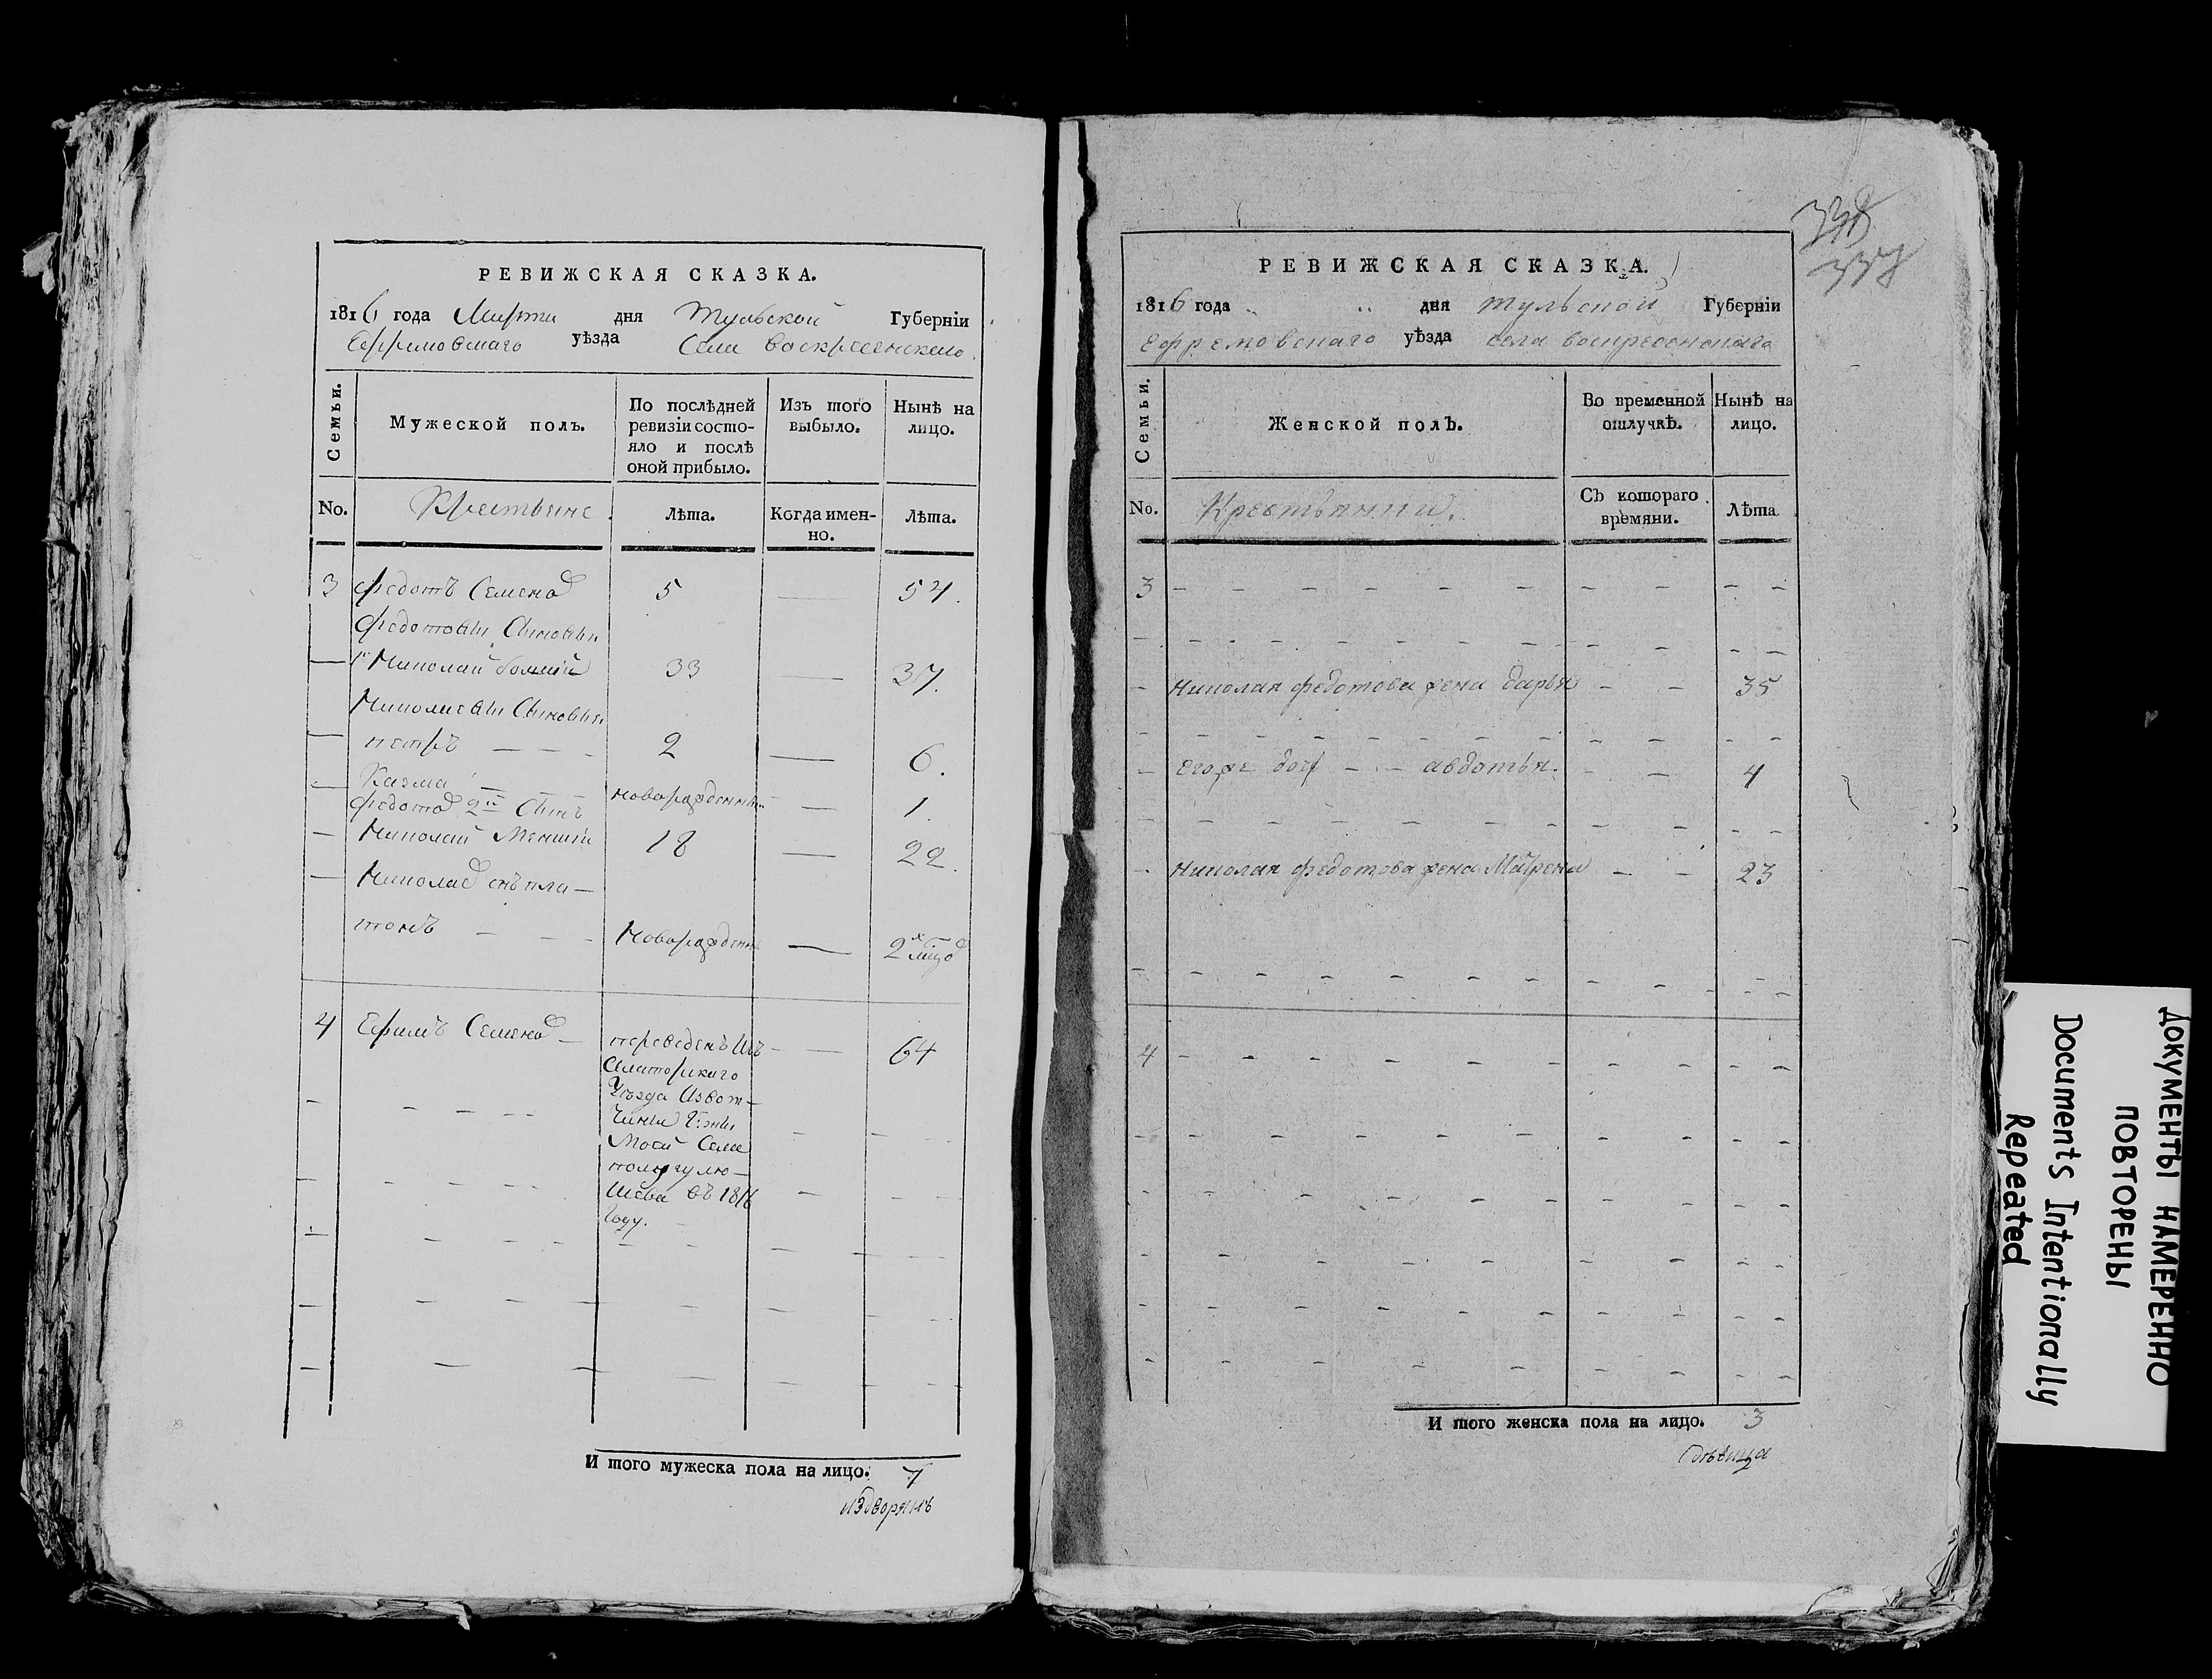 РЕВИЖСКАЯ СКАЗКА.
1816 года Марта дня Тульской Губерніи
Ефремовскаго уѣзда Села Воскресенскаго
Семьи. Мужеской полъ. По послѣдней ревизіи состояло и послѣ оной прибыло. Изъ того выбыло. Нынѣ на лицо.
No. Крестьяне. Лѣта. Когда именно. Лѣта.
3 Федотъ Семенов 5 54.
Федотовы Сыновья
1й Николай болшій 33 37.
Николаевы Сыновья
петръ 2 6.
Казма новорожденны 1.
Федотов 2й Сынъ
Николай Меншій 18 22.
Николаев снъ пла-
тонъ Новорожденъ 2х мѣцов
4 Ефимъ Семенов переведенъ Изъ 64
Алаторскаго
Уѣзда Извот-
чины
Моей Села
въ 1816
Году.
И того мужеска пола на лицо. 7
издворянъ
338
337
РЕВИЖСКАЯ СКАЗКА.
1816 года дня тульской Губерніи
Ефремовскаго уѣзда села воскресенскаго
Семьи. Женской полъ. Во временной отлучкѣ. Нынѣ на лицо.
No. Крестьянки. Съ котораго времяни. Лѣта.
3
Николая федотова жена дарья 35
Егоже доч авдотья. 4
Николая федотова жена Матрена 23
4
И того женска пола на лицо. 3
дѣвица
ДОКУМЕНТЫ НАМЕРЕННО
ПОВТОРЕНЫ
Documents Intentionally
Repeated